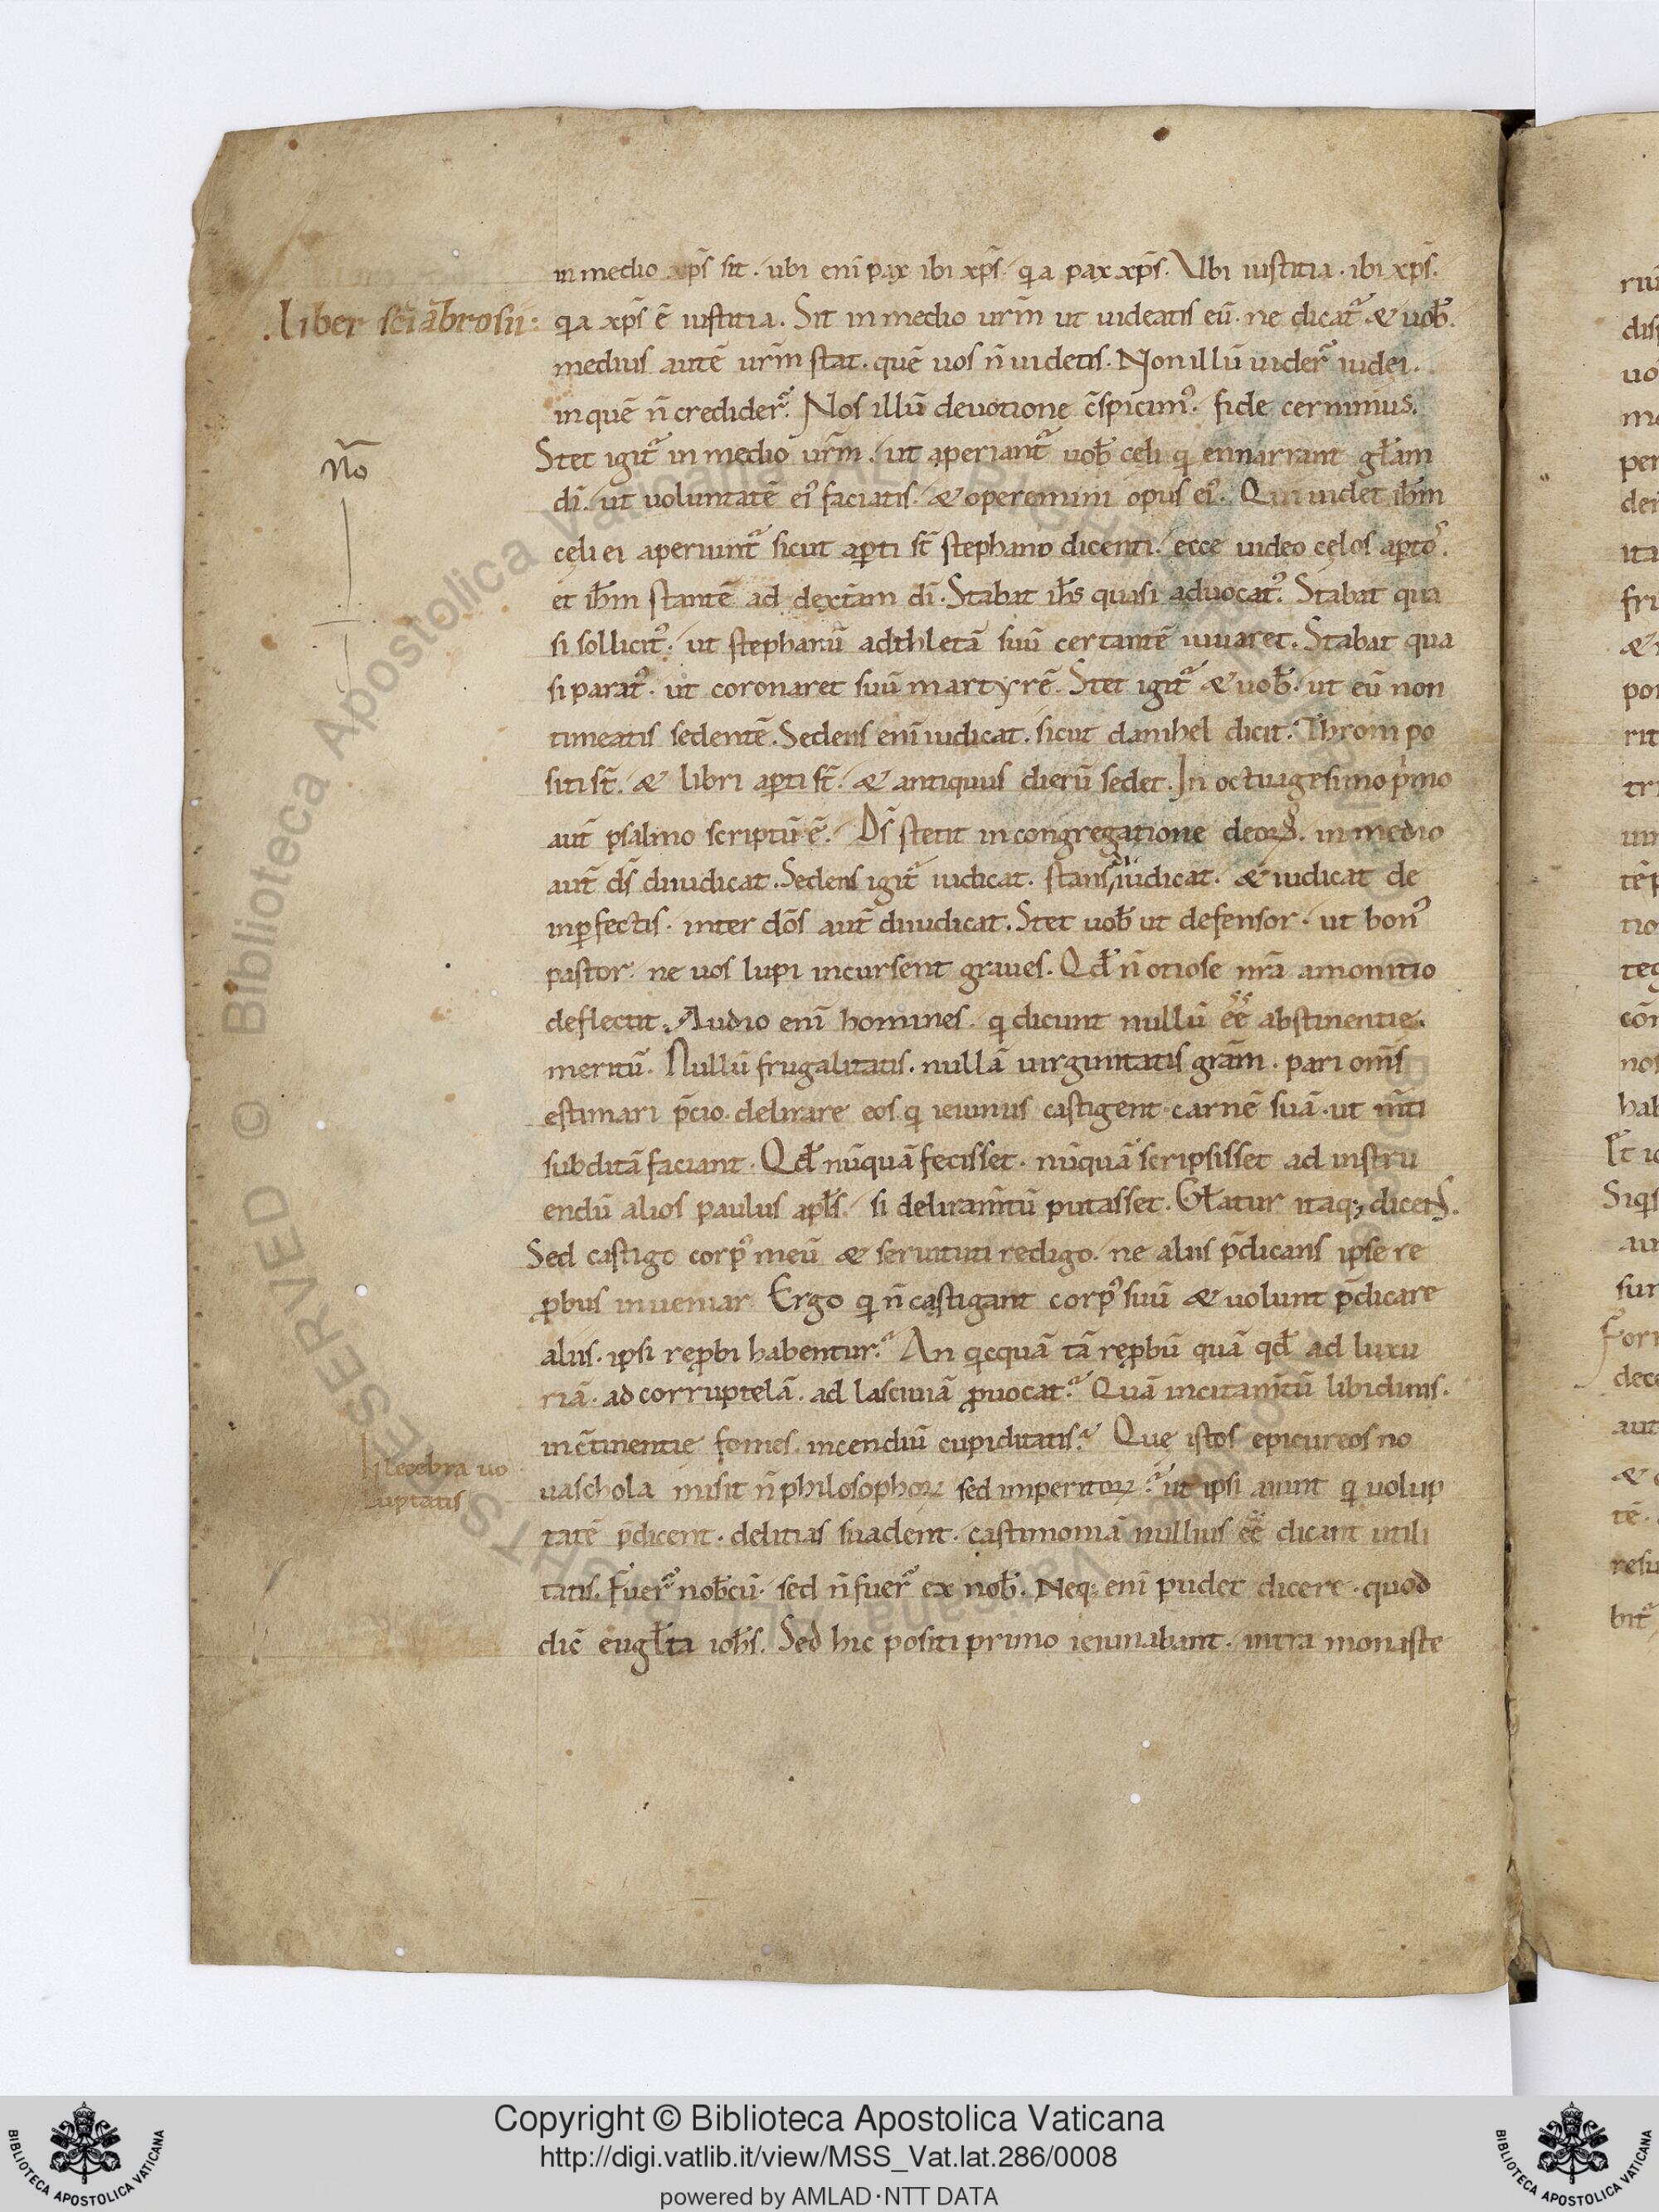 in medio xp̄s sit. ubi enī pax ibi xp̄s. q̓a pax xp̄s. Vbi iustitia. ibi xp̄s.
.liber sc̄i ābrosii:
q̓a xp̄s ē iustitia. Sit in medio ur̄m ut uideatis eū. ne dicat᷑ & uob̄.
medius autē ur̄m stat. quē uos n̄ uidetis. Non illū uider̄ iudei.
in quē n̄ credider̄. Nos illū deuotione c̄spicim᷒. fide cernimus.
No
Stet igit᷑ in medio ur̄m. ut aperiant᷑ uob̄ celi q̓ ennarrant gl̄am
dī. ut uoluntatē ei᷒ faciatis. & operemini opus ei᷒. Qui uidet ih̄m
cęli ei aperiunt᷑ sicut ap̱ti st̄ stephano dicenti. ecce uideo cęlos ap̱to᷒.
et ih̄m stantē ad dext̄am dī. Stabat ih̄s quasi aduocat᷒. Stabat qua
si sollicit᷒. ut stephanū adthletā suū certantē iuuaret. Stabat qua
si parat᷒. ut coronaret suū martyrē. Stet igit᷑ & uob̄. ut eū non
timeatis sedentē. Sedens enī iudicat. sicut danihel dicit. Throni po
siti st̄. & libri ap̱ti st̄. & antiquus dierū sedet. In octuigesimo p̓mo
aut̄ psalmo scriptū ē. Ds̄ stetit in congregatione deoꝝ. in medio
aut̄ ds̄ diiudicat. Sedens igit᷑ iudicat. stans iudicat. & iudicat de
inp̱fectis. inter dōs aut̄ diiudicat. Stet uob̄ ut defensor. ut bon᷒
pastor. ne uos lupi incursent graues. Qd̄ n̄ otiose nr̄a amonitio
deflectit. Audio enī homines. q̓ dicunt nullū ēē abstinentię.
meritū. Nullū frugalitatis. nullā uirginitatis grām. pari om̄s
estimari p̄cio. delirare eos q̓ ieiuniis castigent carnē suā. ut m̄ti
subditā faciant. Qd̄ nūquā fecisset. nūquā scripsisset ad instru
endū alios paulus apl̄s. si deliram̄tū putasset. Gl̄atur itaq; dicens.
Sed castigo corp᷒ meū & seruituti redigo. ne aliis p̄dicans ipse re
ꝓbus inueniar. Ergo q̓ n̄ castigant corp᷒ suū & uolunt p̄dicare
aliis. ipsi reꝓbi habentur. An q̓cquā tā reꝓbū quā qd̄ ad luxu
riā. ad corruptelā. ad lasciuiā ꝓuocat. Quā incitam̄tū libidinis.
Illecebra uo
luptatis
inc̄tinentię fomes. incendiū cupiditatis. Que istos epicureos no
ua schola misit n̄ philosophoꝝ sed imperitoꝝ. ut ipsi aiunt q̓ uolup
tatē p̄dicent. delitias suadent. castimoniā nullius ēē dicant utili
tatis. Fuer̄ nob̄cū. sed n̄ fuer̄ ex nob̄. Neq; enī pudet dicere. quod
dic̄ eugl̄ta ioh̄s. Sed hic positi primo ieiunabant. intra monaste
Copyright © Biblioteca Apostolica Vaticana
http://digi.vatlib.it/view/MSS_Vat.lat.286/0008
powered by AMLAD·NTT DATA
BIBLIOTECA APOSTOLICA VATICANA
BIBLIOTECA APOSTOLICA VATICANA